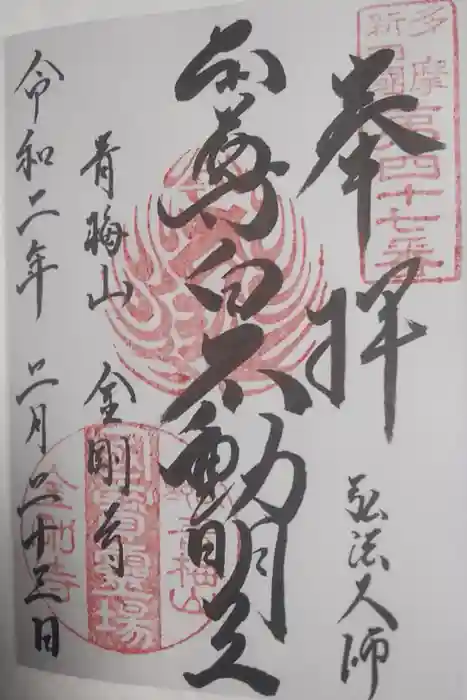 多摩
新四國
第四十七番
奉拝
弘法大師
本尊白不動明王
青梅山 金剛寺
令和二年 二月二十三日
青梅山
金剛寺